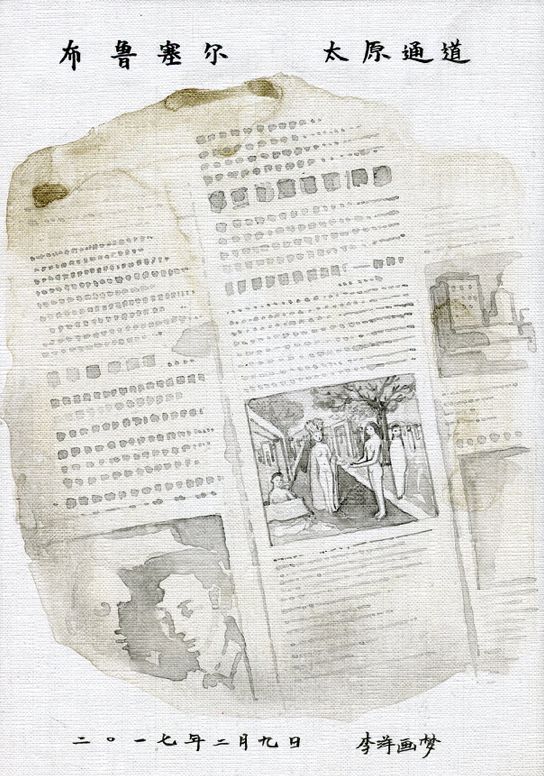 布鲁塞尔 太原通道
二〇一七年二月九日 李洋画梦